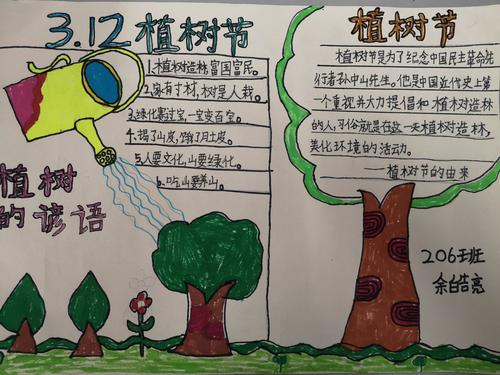 3.12植树节
1.植树造林,富国富民。
2.家有寸材,树是人栽。
3.绿化荒过宝,一宝变百宝。
4.揭了山皮,饿了肚皮。
5.人要文化,山要绿化。
6.吃山要养山。
植树
的谚语
植树节
植树节是为了纪念中国民主革命先
行者孙中山先生。他是中国近代史上第
一个重视并大力提倡和植树造林
的人,习俗就是在这一天植树造林,
美化环境的活动。
——植树节的由来
206班
余皓亮